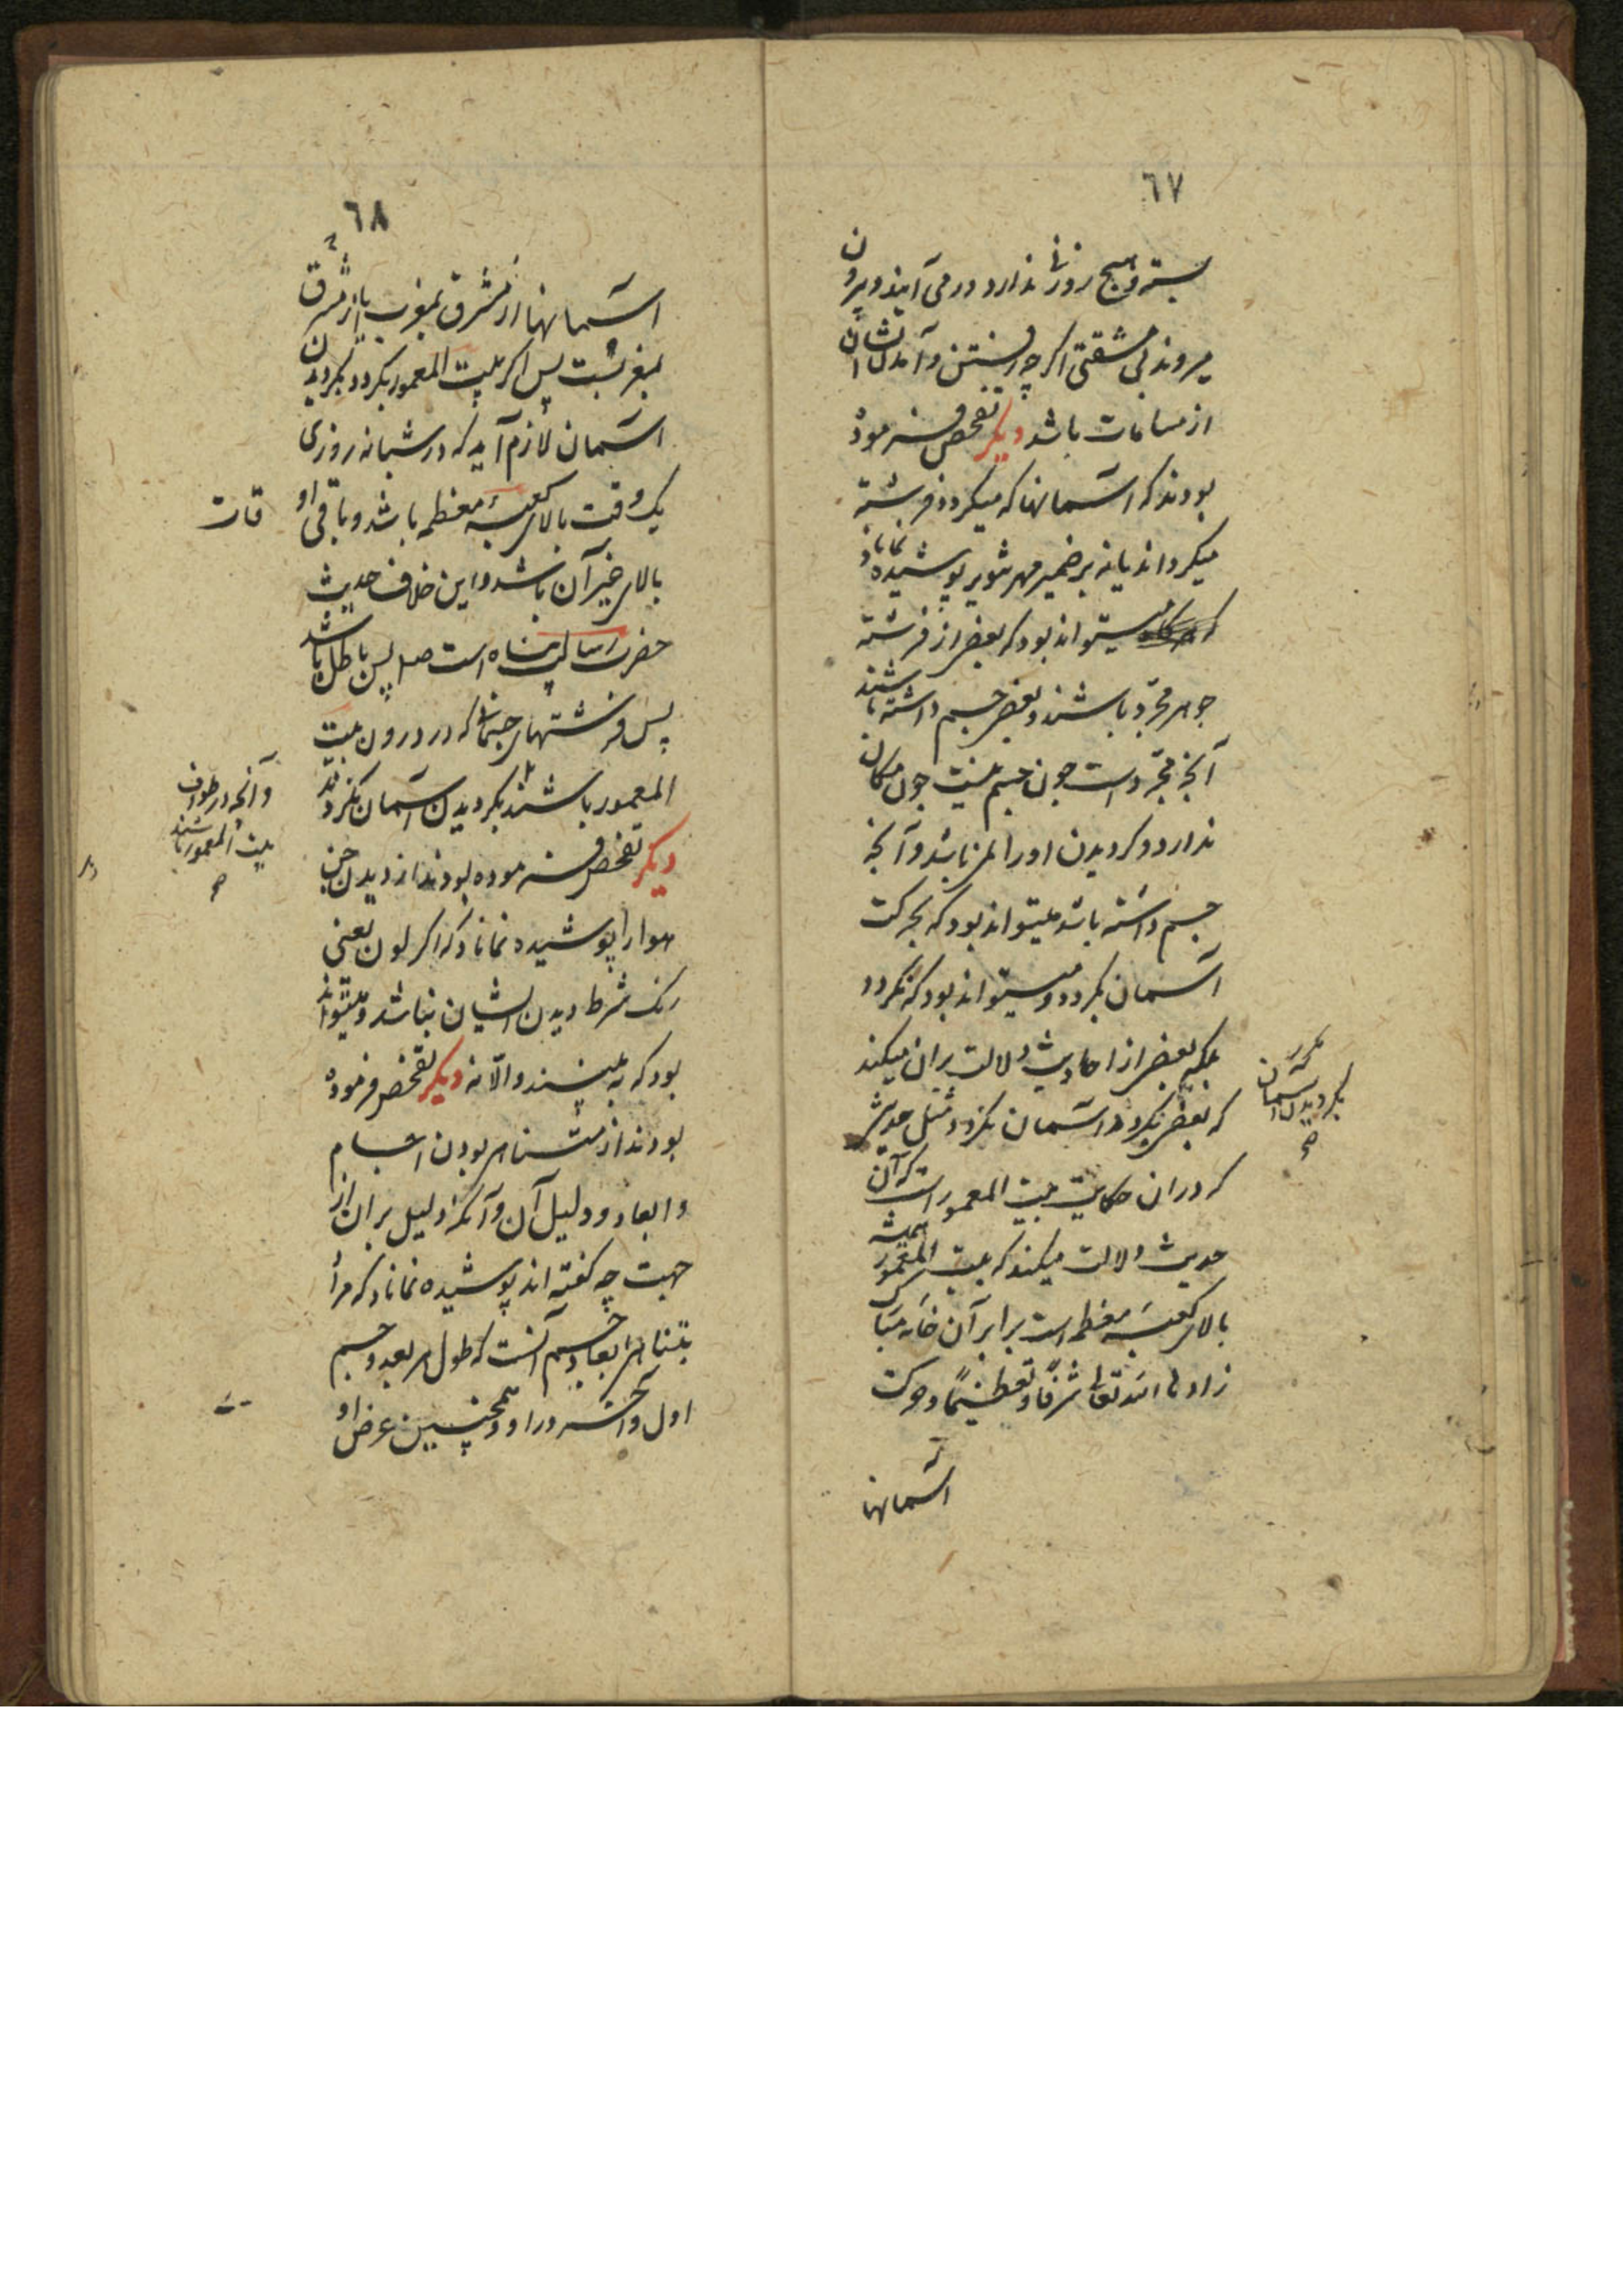 ٦٧
بسته و هیچ روزنی ندارد درمی آیند و بیرون
میروند بی مشقتی اگر چه رفتن و آمدنشان
از مسامات باشد دیگر تفحص فرموده
بودند که اسمانها که میگردد فرشته
میگرداند یا نه بر ضمیر مهر تنویر پوشیده نماناد
که میتواند بود که بعضی از فرشته
جوهر مجرد باشند و بعضی جسم داشته باشند
آنچه مجرد است چون جسم نیست چون مکان
ندارد و گردیدن اورا لازم نباشد و آنچه
جسم داشته باشد میتواند بود که بحرکت
اسمان بگردد و میتواند بود که نگردد
بلکه بعضی از احادیث دلالت بران میکند
که بعضی بگردد اسمان نگردد مثل حدیثی
که دران حکایت بیت المعمور است که آن
حدیث دلالت میکند که بیت المعمور همیشه
بالای کعبه معظمه است برابر آن خانه مبارک
زادها الله تعالی شرفا و تعظیما و حرکت
اسمانها
بگردیدن اسمان
٦٨
اسمانها از مشرق بمغرب یا از مشرق
بمغربست پس اگر بیت المعمور بگردد بگردیدن
اسمان لازم آید که در شبانه روزی
یک وقت بالای کعبه معظمه باشد و باقی او
قات
بالای غیر آن باشد و این خلاف حدیث
حضرت رسالت پناه است صلعم پس باطل باشد
پس فرشتهای جسمانی که در درون بیت
المعمور باشند بگردیدن اسمان نگردند
و آنچه در طواف
بیت المعمور باشند
دیگر تفحص فرموده بودند از دیدن جن
هوا را پوشیده نماناد که اگر لون یعنی
رنگ شرط دیدن ایشان نباشد میتواند
بود که به بینند والا نه دیگر تفحص فرموده
بودند از متناهی بودن اجسام
و ابعاد و دلیل آن و آنکه دلیل بران از
جهت چه گفته اند پوشیده نماناد که مراد
بتناهی ابعاد جسم آنست که طول هر بعد و جسم
اول و آخر دارد و همچنین عرض او